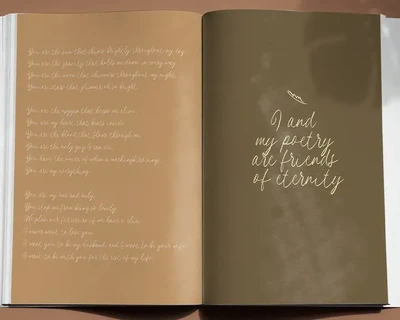 You are the sun that shines brightly throughout my day.
You are the gravity that holds me down in every way.
You are the moon that shimmers throughout my night.
You are stars that glimmer oh so bright.
You are the oxygen that keeps me alive.
You are my heart that beats inside.
You are the blood that flows through me.
You are the only guy I can see.
You have the voice of when a mockingbird sings.
You are my everything.
You are my one and only.
You stop me from being so lonely.
We plan our future as if we have a clue.
I never want to lose you.
I want you to be my husband and I want to be your wife.
I want to be with you for the rest of my life.
I and
my poetry
are friends
of eternity